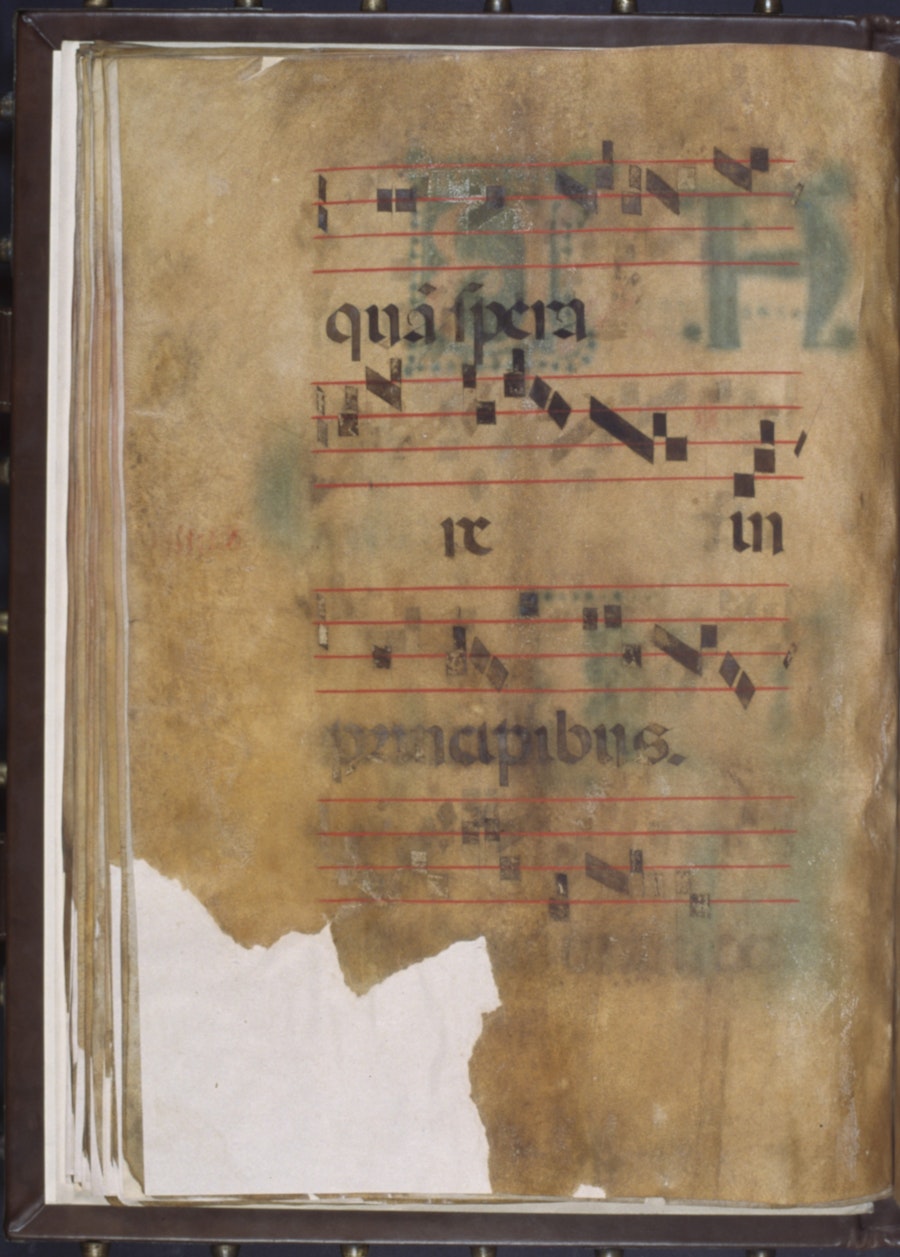 quā spera
re in
principibus.